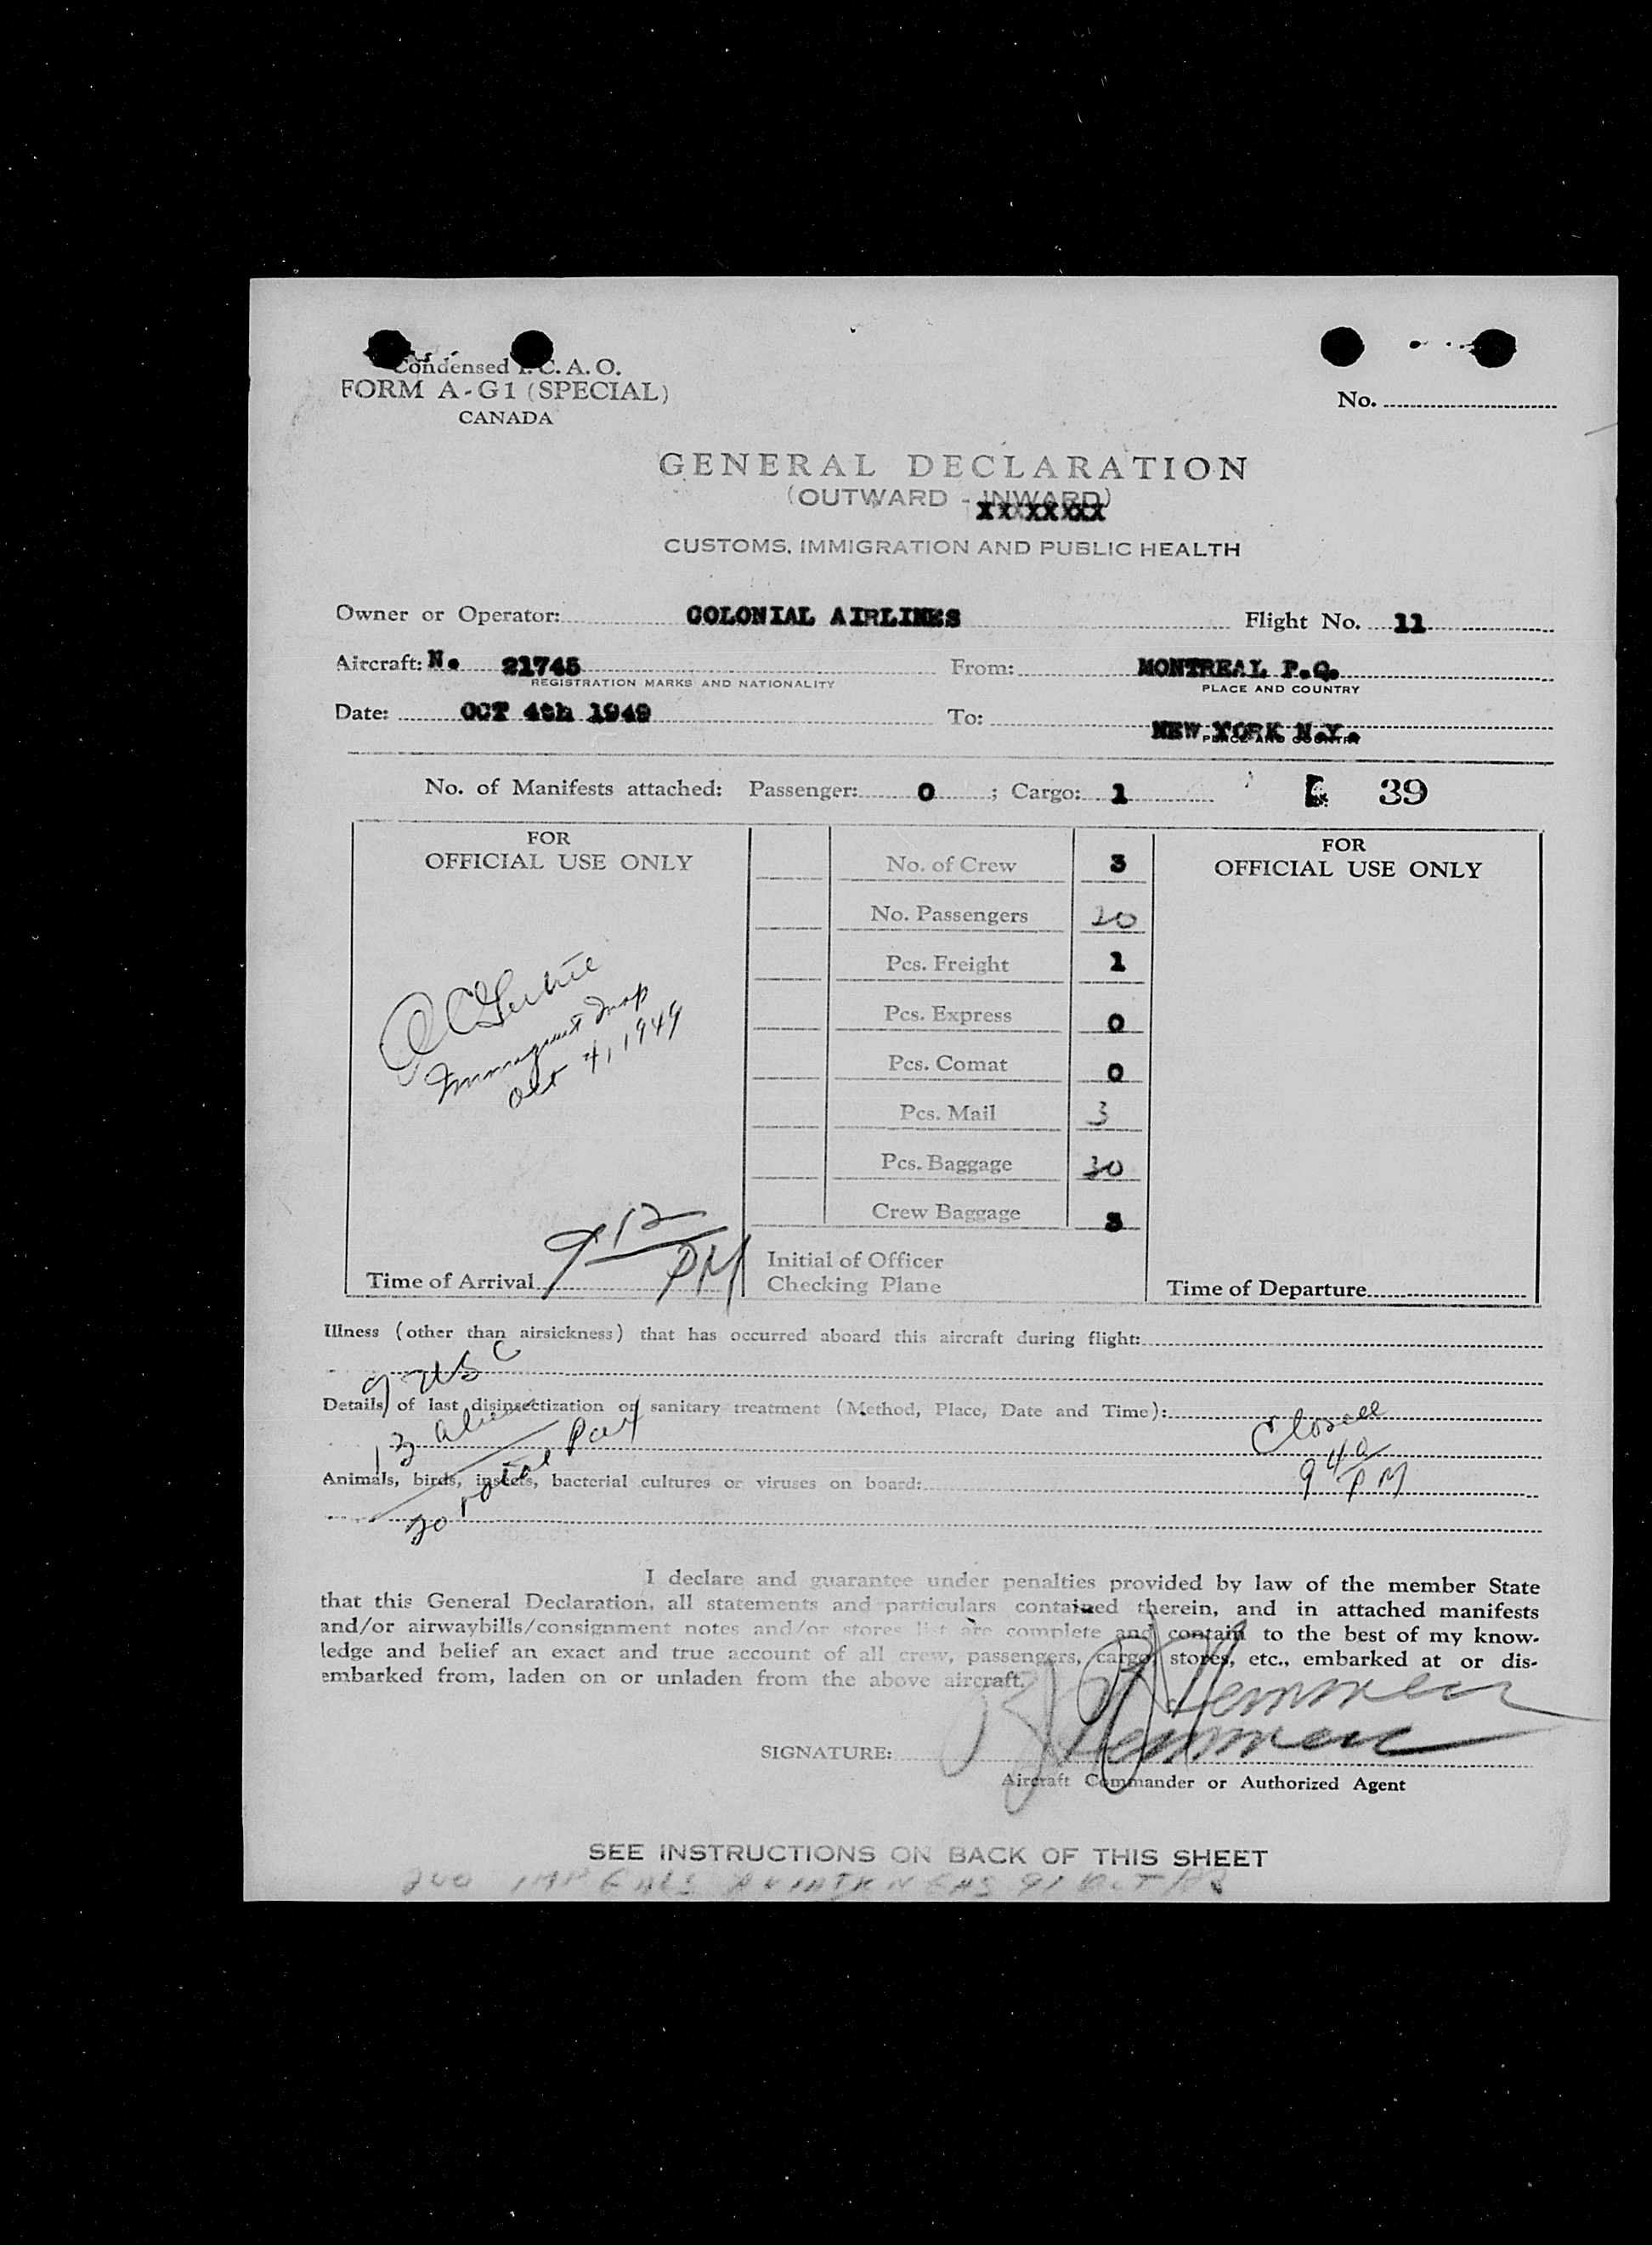 Condensed I. C. A. O.
FORM A-G1 (SPECIAL)
CANADA
No.
GENERAL DECLARATION
(OUTWARD - INWARD)
XXXXXXX
CUSTOMS, IMMIGRATION AND PUBLIC HEALTH
Owner or Operator: COLONIAL AIRLINES Flight No. 11
Aircraft: N. 21745 From: MONTREAL P.Q.
REGISTRATION MARKS AND NATIONALITY PLACE AND COUNTRY
Date: OCT 4th 1949 To: NEW YORK N.Y.
PLACE AND COUNTRY
No. of Manifests attached: Passenger: 0 ; Cargo: 1 39
FOR
OFFICIAL USE ONLY
Oct 4, 1949
Time of Arrival 9 12 PM
No. of Crew 3
No. Passengers 20
Pcs. Freight 1
Pcs. Express 0
Pcs. Comat 0
Pcs. Mail 3
Pcs. Baggage 30
Crew Baggage 3
Initial of Officer
Checking Plane
FOR
OFFICIAL USE ONLY
Time of Departure
Illness (other than airsickness) that has occurred aboard this aircraft during flight:
USC
Details of last disinsectization or sanitary treatment (Method, Place, Date and Time):
13 Aliens
Closed
9 40 PM
Animals, birds, insects, bacterial cultures or viruses on board:
20 total Pax
I declare and guarantee under penalties provided by law of the member State
that this General Declaration, all statements and particulars contained therein, and in attached manifests
and/or airwaybills/consignment notes and/or stores list are complete and contain to the best of my know-
ledge and belief an exact and true account of all crew, passengers, cargo, stores, etc., embarked at or dis-
embarked from, laden on or unladen from the above aircraft.
SIGNATURE:
Aircraft Commander or Authorized Agent
SEE INSTRUCTIONS ON BACK OF THIS SHEET